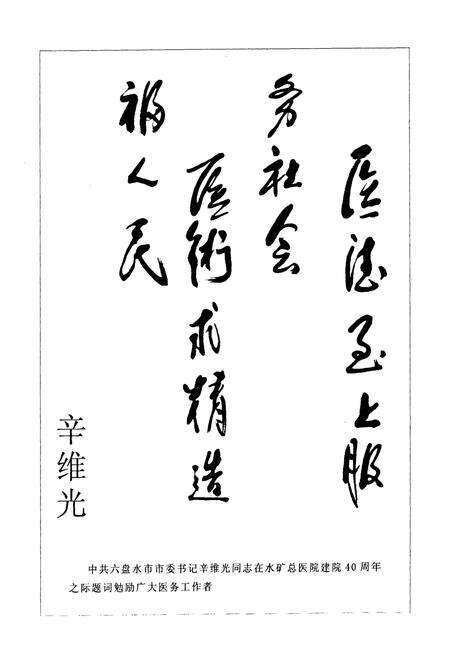 医德至上服
务社会
医術求精造
福人民
辛维光
中共六盘水市市委书记辛维光同志在水矿总医院建院40周年
之际题词勉励广大医务工作者